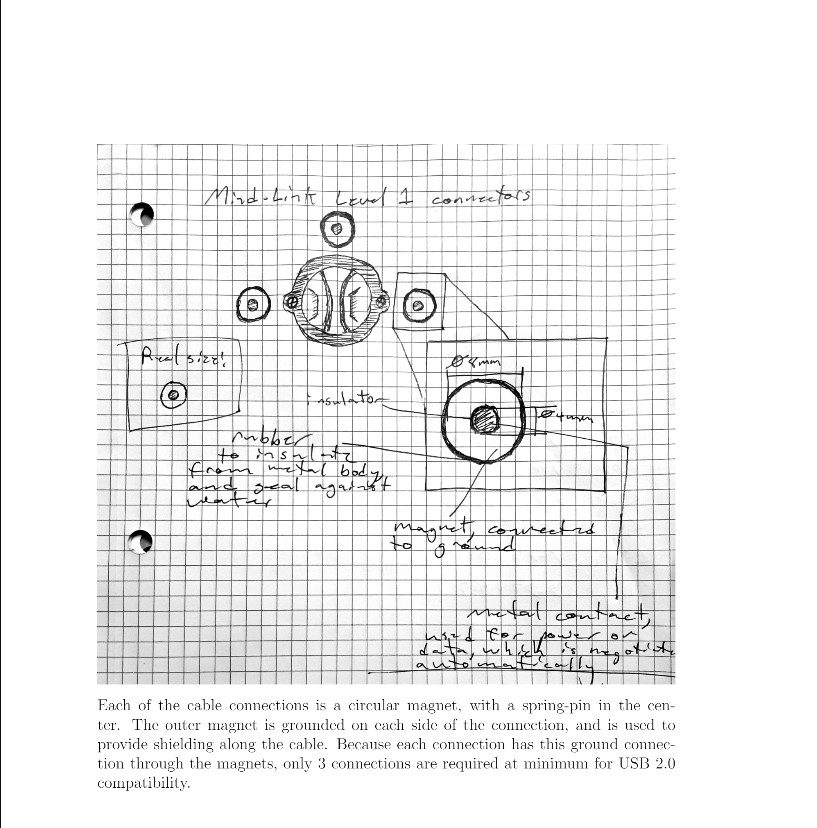 Mind-Link Level 1 connectors
Real size!
ø 8mm
insulator
ø 4mm
rubber
to insulate
from metal body,
and seal against
water
magnet, connected
to ground
metal contact,
used for power or
data, which is negotiate
automatically
Each of the cable connections is a circular magnet, with a spring-pin in the cen-
ter. The outer magnet is grounded on each side of the connection, and is used to
provide shielding along the cable. Because each connection has this ground connec-
tion through the magnets, only 3 connections are required at minimum for USB 2.0
compatibility.